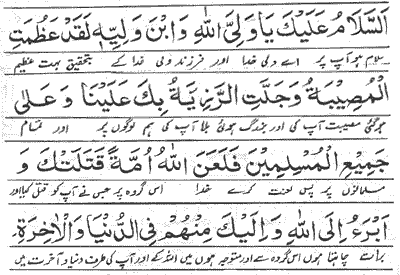 اَلسَّلَامُ عَلَيْكَ يَا وَلِيَّ اللهِ وَابْنَ وَلِيِّهٖ لَقَدْ عَظُمَتِ
سلام ہو آپ پر اے ولی خدا اور فرزند ولی خدا کے بتحقیق بہت عظیم
الْمُصِيْبَةُ وَجَلَّتِ الرَّزِيَّةُ بِكَ عَلَيْنَا وَعَلٰى
ہوگئی مصیبت آپ کی اور بزرگ ہوئی بلا آپ کی ہم لوگوں پر اور تمام
جَمِيْعِ الْمُسْلِمِيْنَ فَلَعَنَ اللهُ اُمَّةً قَتَلَتْكَ وَ
مسلمانوں پر پس لعنت کرے خدا اس گروہ پر جس نے آپ کو قتل کیا اور
اَبْرَءُ اِلَى اللهِ وَاِلَيْكَ مِنْهُمْ فِى الدُّنْيَا وَالْاٰخِرَةِ.
برات چاہتا ہوں اس گروہ سے اور متوجہ ہوں میں اللہ کے اور آپ کی طرف دنیا و آخرت میں